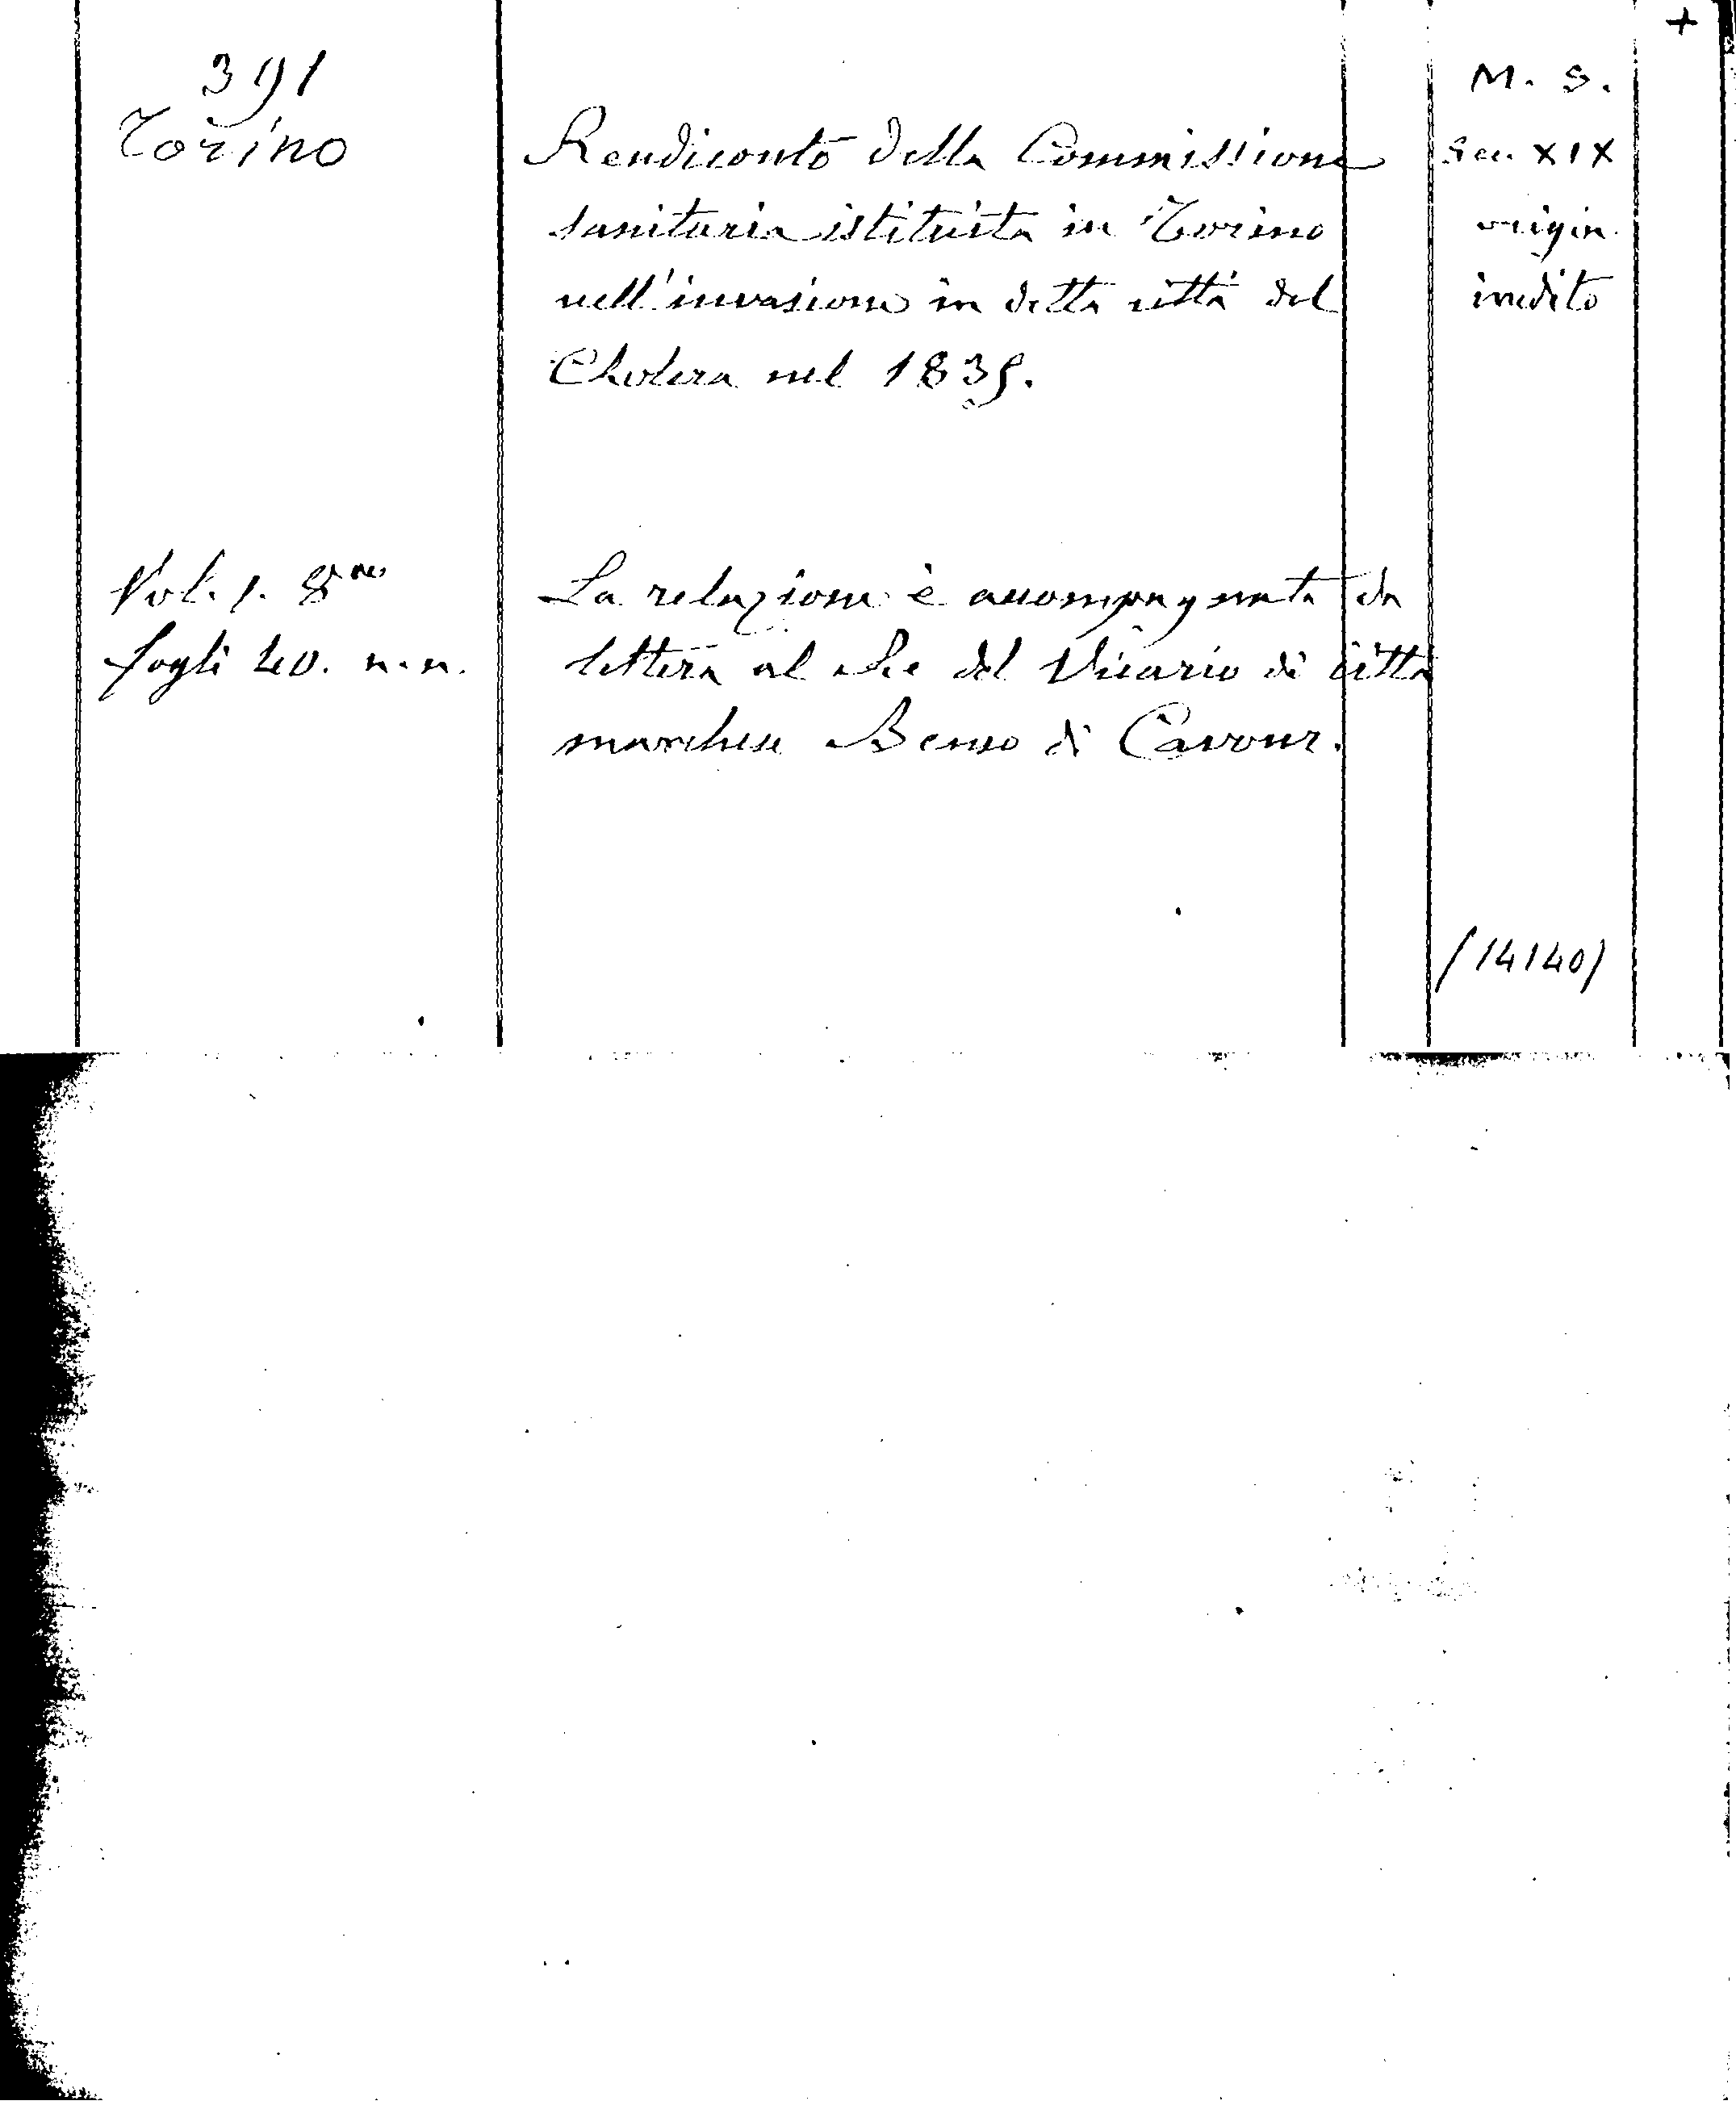 +
391
Torino
Rendiconto della Commissione
sanitaria istituita in Torino
nell'invasione in detta città del
Cholera nel 1835.
M. S.
Sec. XIX
origin.
inedito
Vol. 1. 8vo
fogli 40. n.n.
La relazione è accompagnata da
lettera al Re del Vicario di città
marchese Benso di Cavour.
(14140)